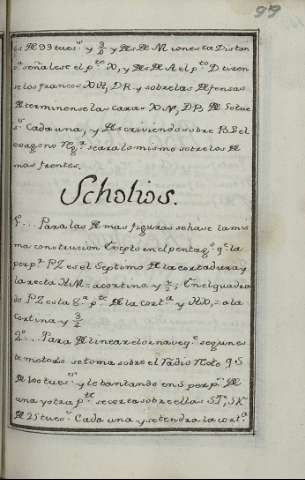 99
de 93 tues.ˢ y 3/2 y desde M iones ta Distan
p.ª señalese el p.ᵗᵒ X, y desde A el p.ᵗᵒ D tiren
se los francos XR, DR y sobre las defensas
determinense las caras XN, DP, de
Cada una, y descriviendo sobre el
exagono Reg.ʳ se ara lo mismo sobre los de
mas frentes.
Scholios.
1.º... Para las demas figuras sehase la mis
ma construcion Excepto en el pentag.º q.ᵉ la
perp.ʳ PZ es el Septimo de la cortadura y
la recta KM = a cortina y 1/2; En el quadra
do PZ es la 8.ª p.ᵗᵉ de la cort.ª y KX, = a la
cortina y 3/2
2.º... Para delinear el ornaveq.º segun es
te metodo se toma sobre el Radio
de 100 tues.ˢ y lebantando en S perp.ʳ de
una y otra p.ᵗᵉ se corta sobre ellas ST, SK
de 25 tues.ˢ Cada una y se tendra la cort.ª